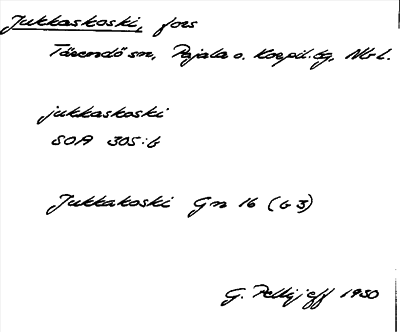 Jukkaskoski, fors
Tärendö sn, Pajala o. Korpil. tg, Nb l.
jukkaskoski
SOA 305:6
Jukkakoski Gn 16 (G 3)
G. Pellijeff 1950